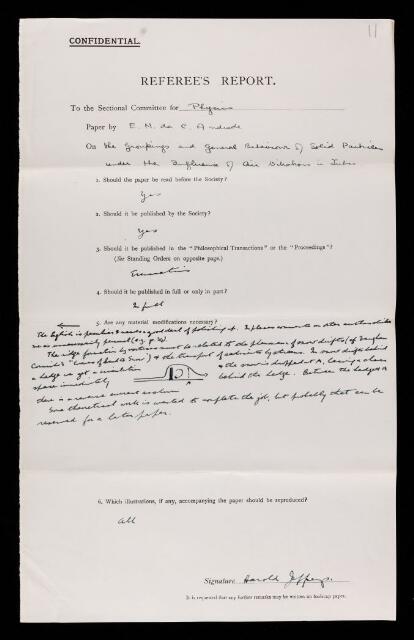 11
CONFIDENTIAL.
REFEREE'S REPORT.
To the Sectional Committee for Physics
Paper by E. N. da C. Andrade
On the Groupings and General Behaviour of Solid Particles
under the Influence of Air Vibrations in Tubes
1. Should the paper be read before the Society?
Yes
2. Should it be published by the Society?
Yes
3. Should it be published in the "Philosophical Transactions" or the "Proceedings"?
(See Standing Orders on opposite page.)
Transactions
4. Should it be published in full or only in part?
In full
5. Are any material modifications necessary?
The English is peculiar & needs a good deal of polishing up. In places comments on other authors
are unnecessarily
The ridge formation by vortices must be related to the phenomena of snow drifts (cf Vaughan
Cornish's "Waves of Sand & Snow") & the transport of sediments by streams. In snow drifts behind
a hedge we get a circulation & the snow is dropped at A, leaving a clear
space immediately behind the hedge. Between the hedge & A
A
there is a reverse current
Some theoretical work is wanted to complete the job, but probably that can be
reserved for a later paper.
6. Which illustrations, if any, accompanying the paper should be reproduced?
All
Signature Harold Jeffreys.
It is requested that any further remarks may be written on foolscap paper.